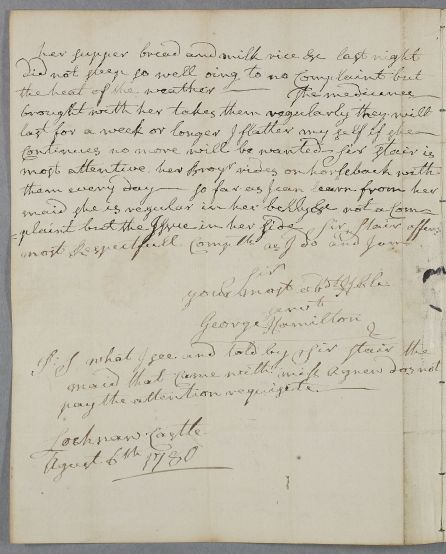 her supper bread and milk rice &c last night
did not sleep so well oing to no Complaint but
the heat of the weather — The medicines
brought with her takes them regularly they will
last for a week or longer I flatter my self if she
Continues no more will be wanted Sir Stair is
most attentive her Broyr rides on horseback with
them every day — so far as I can learn from her
maid she is regular in her not a Com
plaint but the Issue in her Side Sir Stair offers
most Respectfull Complts as I do and I am
Sir
your most obdt Hble
servt
George Hamilton
P: S what I see and told by Sir Stair the
maid that Came with miss Agnew does not
pay the attention requisite
Lochnaw Castle
Agust 6th 1780